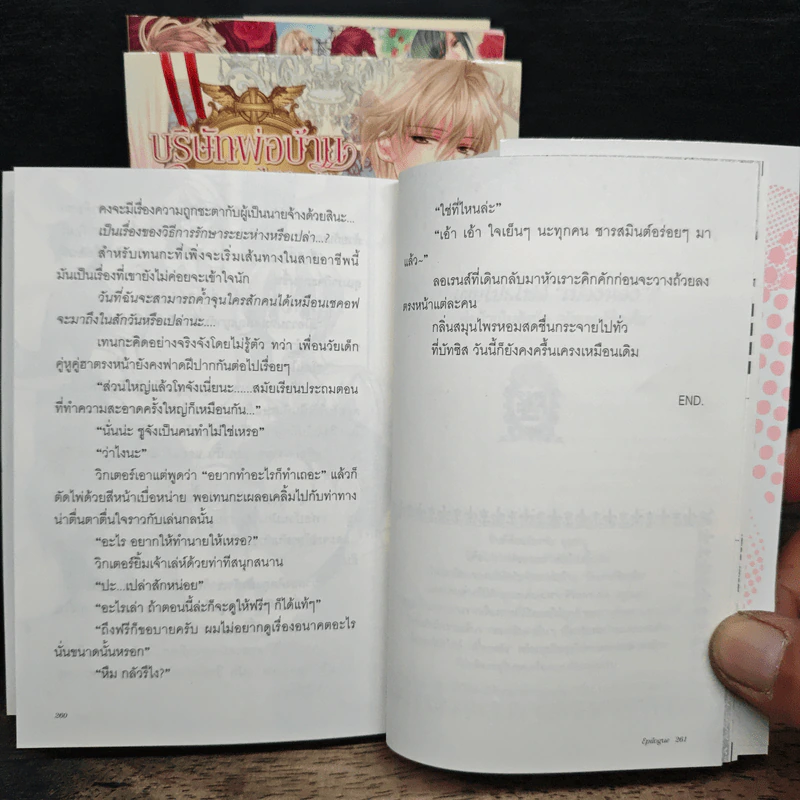 บริษัทพ่อบ้าน
คงจะมีเรื่องความถูกชะตากับผู้เป็นนายจ้างด้วยสินะ...
เป็นเรื่องของวิธีการรักษาระยะห่างหรือเปล่า...?
สำหรับเทนกะที่เพิ่งจะเริ่มเส้นทางในสายอาชีพนี้
มันเป็นเรื่องที่เขายังไม่ค่อยจะเข้าใจนัก
วันที่ฉันจะสามารถค้ำจุนใครสักคนได้เหมือนเชคอฟ
จะมาถึงในสักวันหรือเปล่านะ....
เทนกะคิดอย่างจริงจังโดยไม่รู้ตัว ทว่า เพื่อนวัยเด็ก
คู่หูคู่ฮาตรงหน้ายังคงฟาดฝีปากกันต่อไปเรื่อยๆ
“ส่วนใหญ่แล้วโทจังเนี่ยนะ......สมัยเรียนประถมตอน
ที่ทำความสะอาดครั้งใหญ่ก็เหมือนกัน...”
“นั่นน่ะ ชูจังเป็นคนทำไม่ใช่เหรอ”
“ว่าไงนะ”
วิกเตอร์เอาแต่พูดว่า “อยากทำอะไรก็ทำเถอะ” แล้วก็
ตัดไพ่ด้วยสีหน้าเบื่อหน่าย พอเทนกะเผลอเคลิ้มไปกับท่าทาง
น่าตื่นตาตื่นใจราวกับเล่นกลนั้น
“อะไร อยากให้ทำนายให้เหรอ?”
วิกเตอร์ยิ้มเจ้าเล่ห์ด้วยท่าทีสนุกสนาน
“ปะ...เปล่าสักหน่อย”
“อะไรเล่า ถ้าตอนนี้ล่ะก็จะดูให้ฟรีๆ ก็ได้แท้ๆ”
“ถึงฟรีก็ขอบายครับ ผมไม่อยากดูเรื่องอนาคตอะไร
นั่นขนาดนั้นหรอก”
“หืม กลัวรึไง?”
260
“ใช่ที่ไหนล่ะ”
“เอ้า เอ้า ใจเย็นๆ นะทุกคน ชารสมินต์อร่อยๆ มา
แล้ว~”
ลอเรนส์ที่เดินกลับมาหัวเราะคิกคักก่อนจะวางถ้วยลง
ตรงหน้าแต่ละคน
กลิ่นสมุนไพรหอมสดชื่นกระจายไปทั่ว
ที่บัทซิส วันนี้ก็ยังคงครื้นเครงเหมือนเดิม
END.
Epilogue 261